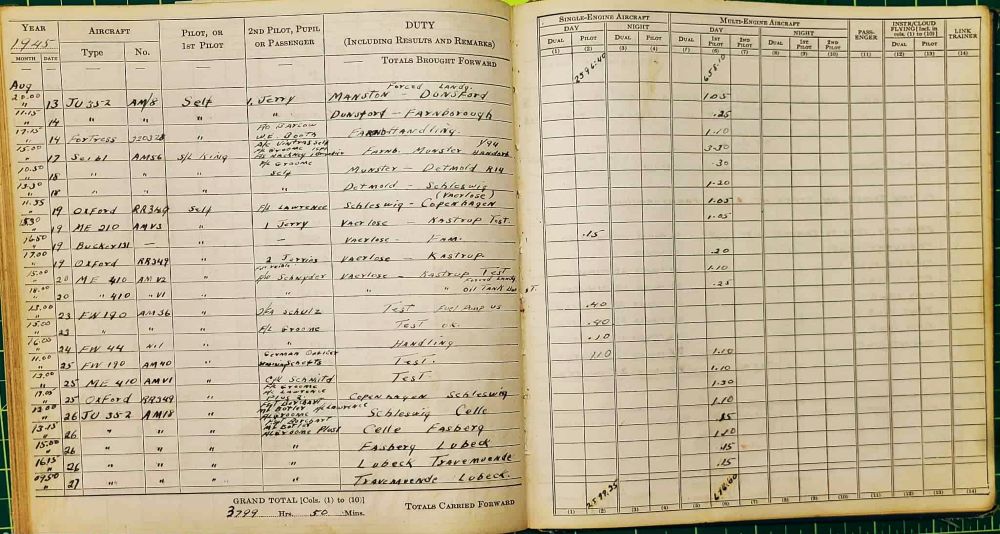 YEAR AIRCRAFT PILOT, OR 2ND PILOT, PUPIL DUTY
1945 Type No. 1ST PILOT OR PASSENGER (INCLUDING RESULTS AND REMARKS)
MONTH DATE TOTALS BROUGHT FORWARD
Aug Forced Landg.
20.00 13 JU 352 AM/8 Self 1. Jerry MANSTON - DUNSFORD
11.15 " 14 " " " DUNSFORD - FARNBOROUGH
17.15 " 14 Fortress " F/O BARLOW W.E. BOOTH HANDLING.
15.00 " 17 AM56 S/L KING Self FARNB. MUNSTER Y94
10.50 " 18 " " " F/L GROOME Self MUNSTER - DETMOLD R14
13.30 " 18 " " " " DETMOLD - SCHLESWIG
11.35 " 19 OXFORD RR349 Self F/L LAWRENCE SCHLESWIG - COPENHAGEN (VAERLOSE)
" 19 ME 210 AMV3 " 1 Jerry VAERLOSE - KASTRUP TEST.
16.50 " 19 BUCKER 131 — " — VAERLOSE - FAM.
17.00 " 19 OXFORD RR349 " 2 Jerries VAERLOSE - KASTRUP
15.00 " 20 ME 410 AM V2 " SCHNYDER VAERLOSE - KASTRUP TEST
18.00 20 " 410 " V1 " " " " Forced Landg OIL TANK
13.00 " 23 FW 190 AM36 " SCHULZ TEST Fuel Pump US
15.00 " 23 " " " F/L GROOME TEST OK.
16.00 " 24 FW 44 Nil " HANDLING
11.00 " 25 FW 190 AM40 " GERMAN OFFICER TEST.
13.00 " 25 ME 410 AMV1 " SCHMITD TEST
" 25 OXFORD RR349 " F/L GROOME LAWRENCE PLUS 2 COPENHAGEN SCHLESWIG
12.00 " 26 JU 352 AM18 " BUTLER LAWRENCE GROOME SCHLESWIG CELLE
13.15 " 26 " " " BUTLER GROOME CELLE FASBERG
15.00 " 26 " " " " FASBERG LUBECK
16.15 " 26 " " " " LUBECK TRAVEMUENDE
09.50 " 27 " " " " TRAVEMUENDE LUBECK.
GRAND TOTAL [Cols. (1) to (10)]
3799 Hrs. 50 Mins. TOTALS CARRIED FORWARD
SINGLE-ENGINE AIRCRAFT MULTI-ENGINE AIRCRAFT PASS-ENGER INSTR/CLOUD FLYING [Incl. in cols. (1) to (10)] LINK TRAINER
DAY NIGHT DAY NIGHT
DUAL PILOT DUAL PILOT DUAL 1ST PILOT 2ND PILOT DUAL 1ST PILOT 2ND PILOT DUAL PILOT
(1) (2) (3) (4) (5) (6) (7) (8) (9) (10) (11) (12) (13) (14)
2596.40 658.10
1.05
.25
1.10
3.30
.30
1.20
1.05
1.05
.15
.20
1.10
.25
.40
.40
.10
1.10 1.10
1.10
1.30
1.10
1.10
.15
.15
2599.35
(1) (2) (3) (4) (5) (6) (7) (8) (9) (10) (11) (12) (13) (14)